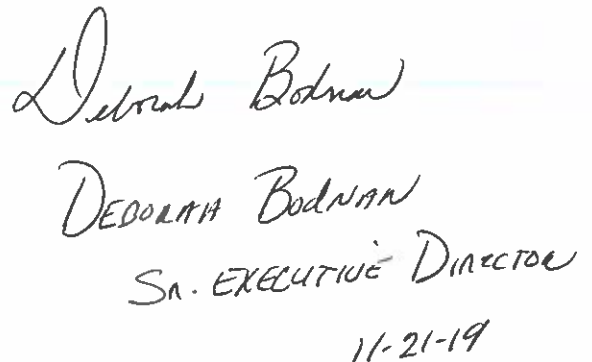 Deborah Bodnar
DEBORAH BODNAR
SR. EXECUTIVE DIRECTOR
11-21-19